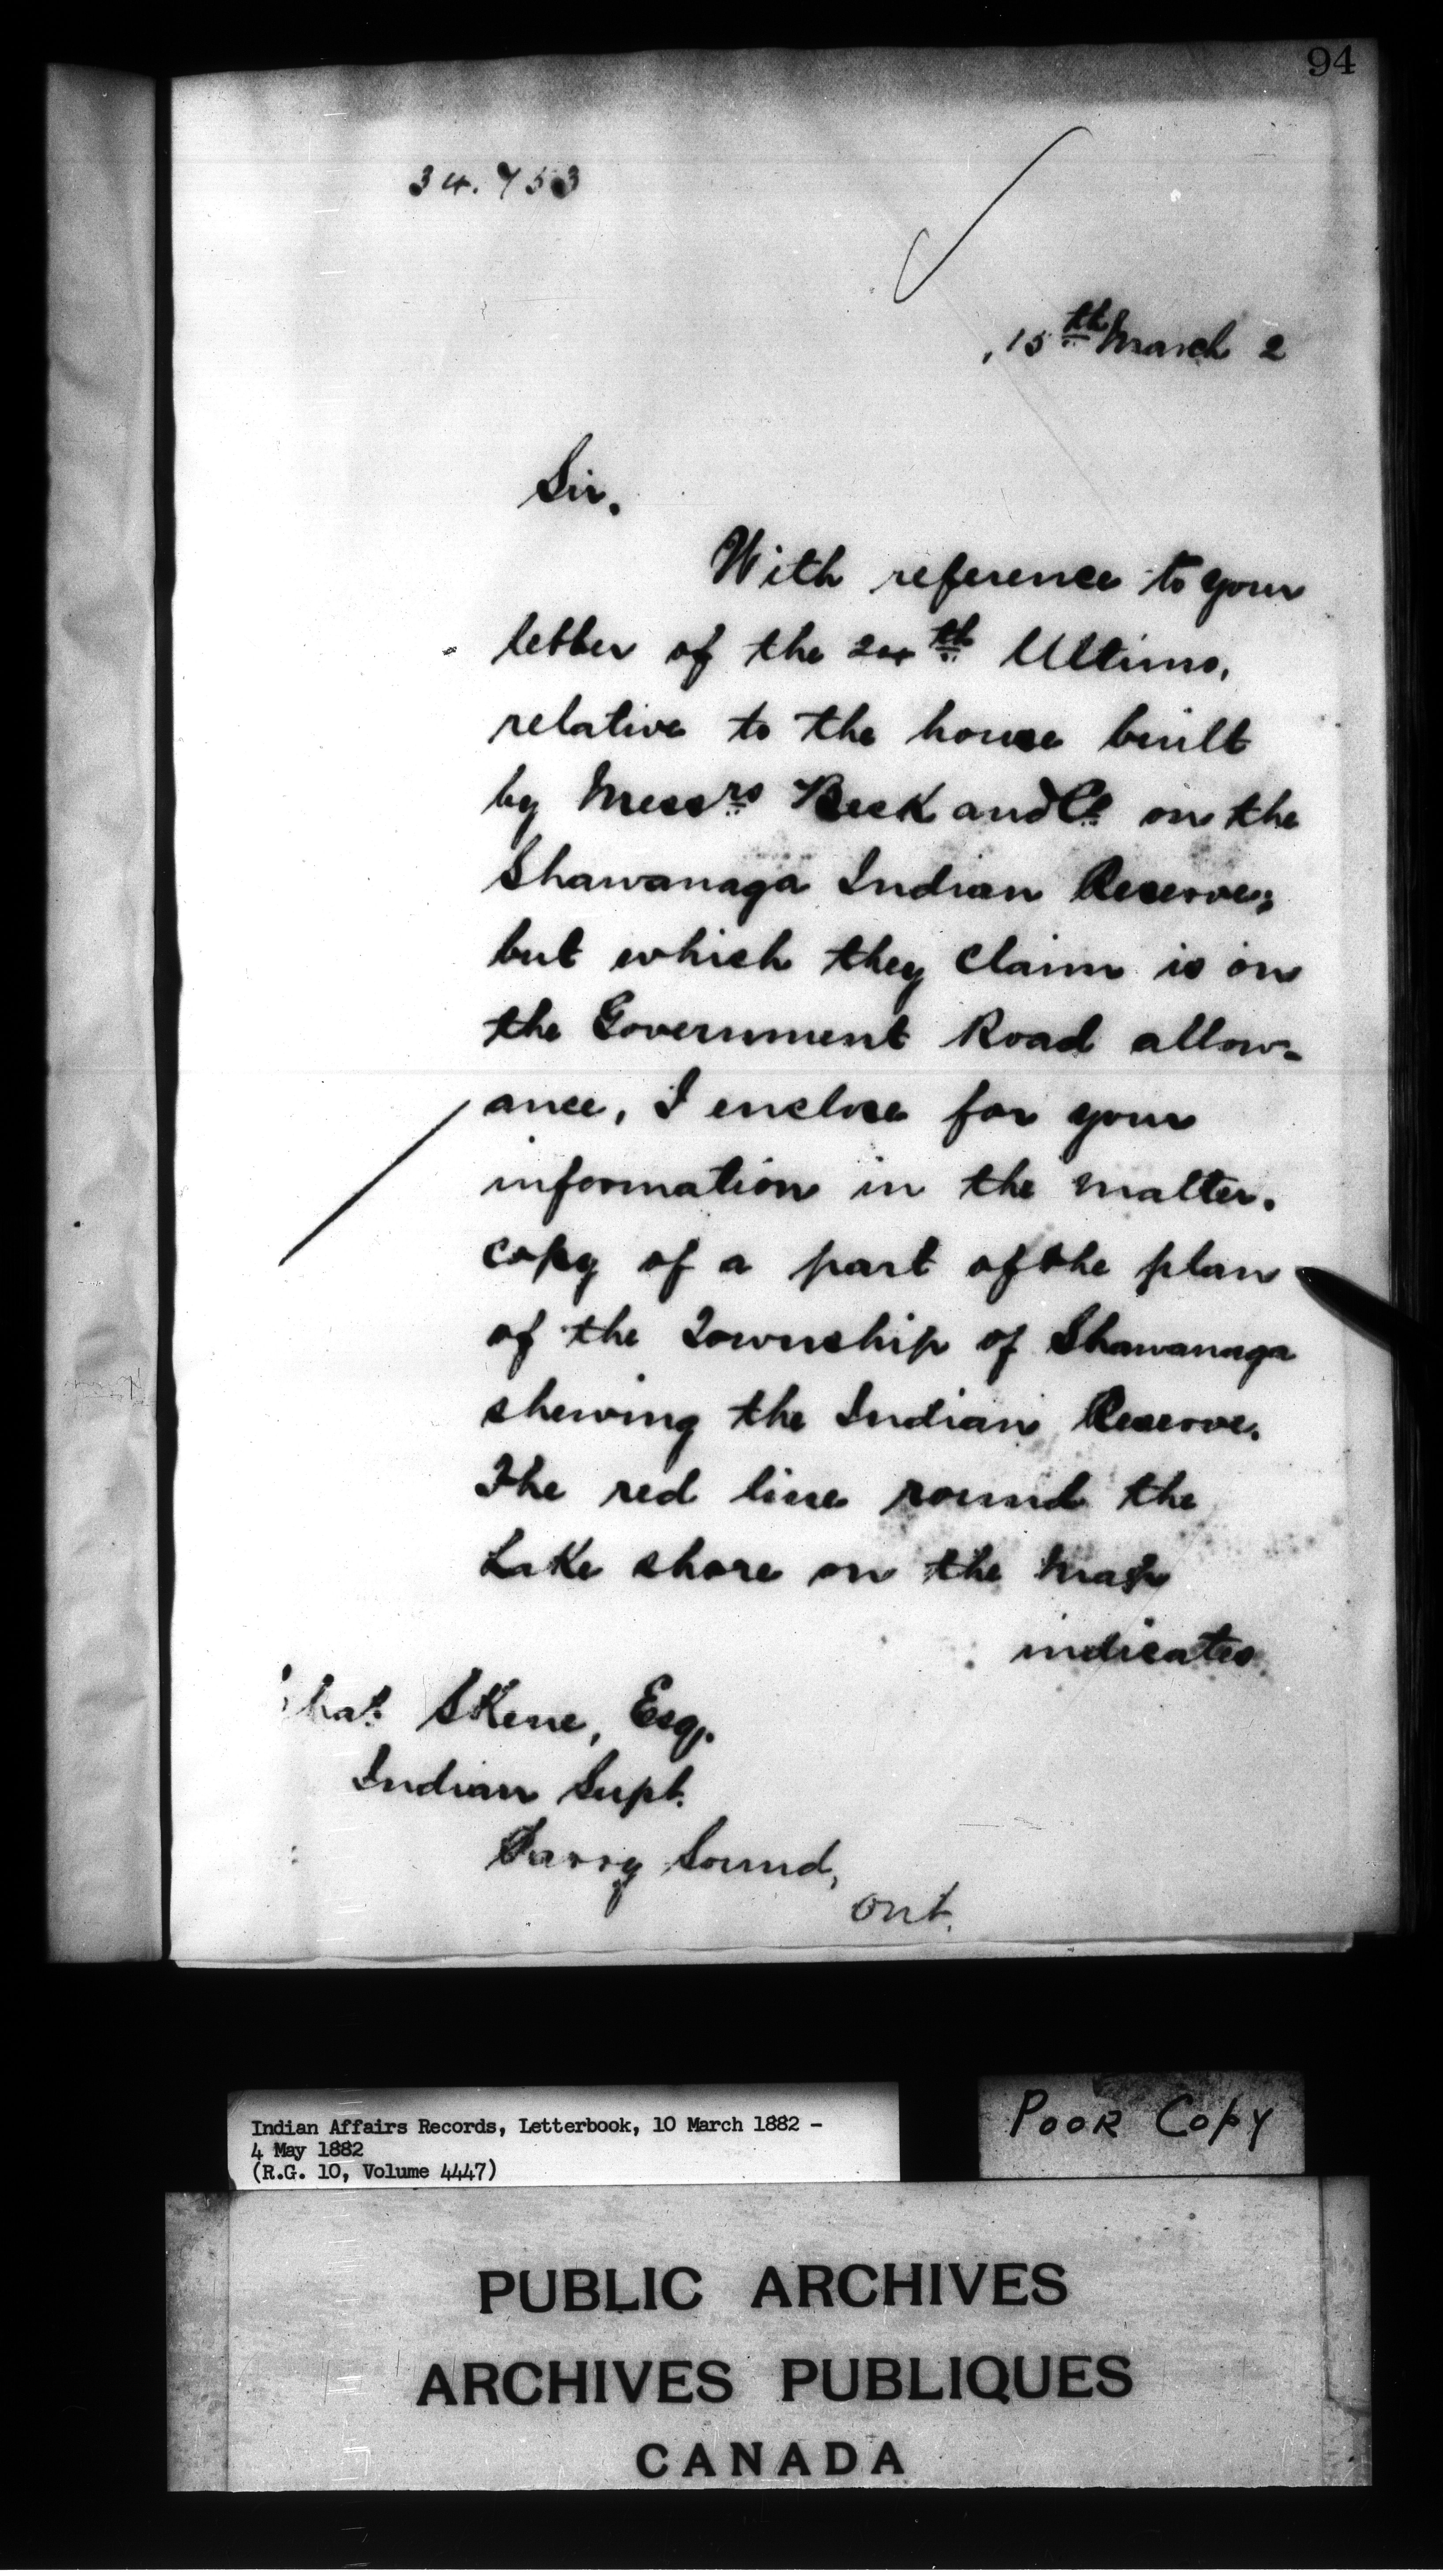 94
34.753
15th March 2
Sir.
With reference to your
letter of the 24th Ultimo,
relative to the house built
by Messrs Beck and Co on the
Shawanaga Indian Reserve;
but which they claim is on
the Government Road allow-
ance, I enclose for your
information in the matter.
copy of a part of the plan
of the Township of Shawanaga
shewing the Indian Reserve.
The red line round the
Lake shore on the map
indicates
Chas Skene, Esq.
Indian Supt.
Parry Sound,
Ont.
Indian Affairs Records, Letterbook, 10 March 1882 -
4 May 1882
(R.G. 10, Volume 4447)
POOR COPY
PUBLIC ARCHIVES
ARCHIVES PUBLIQUES
CANADA